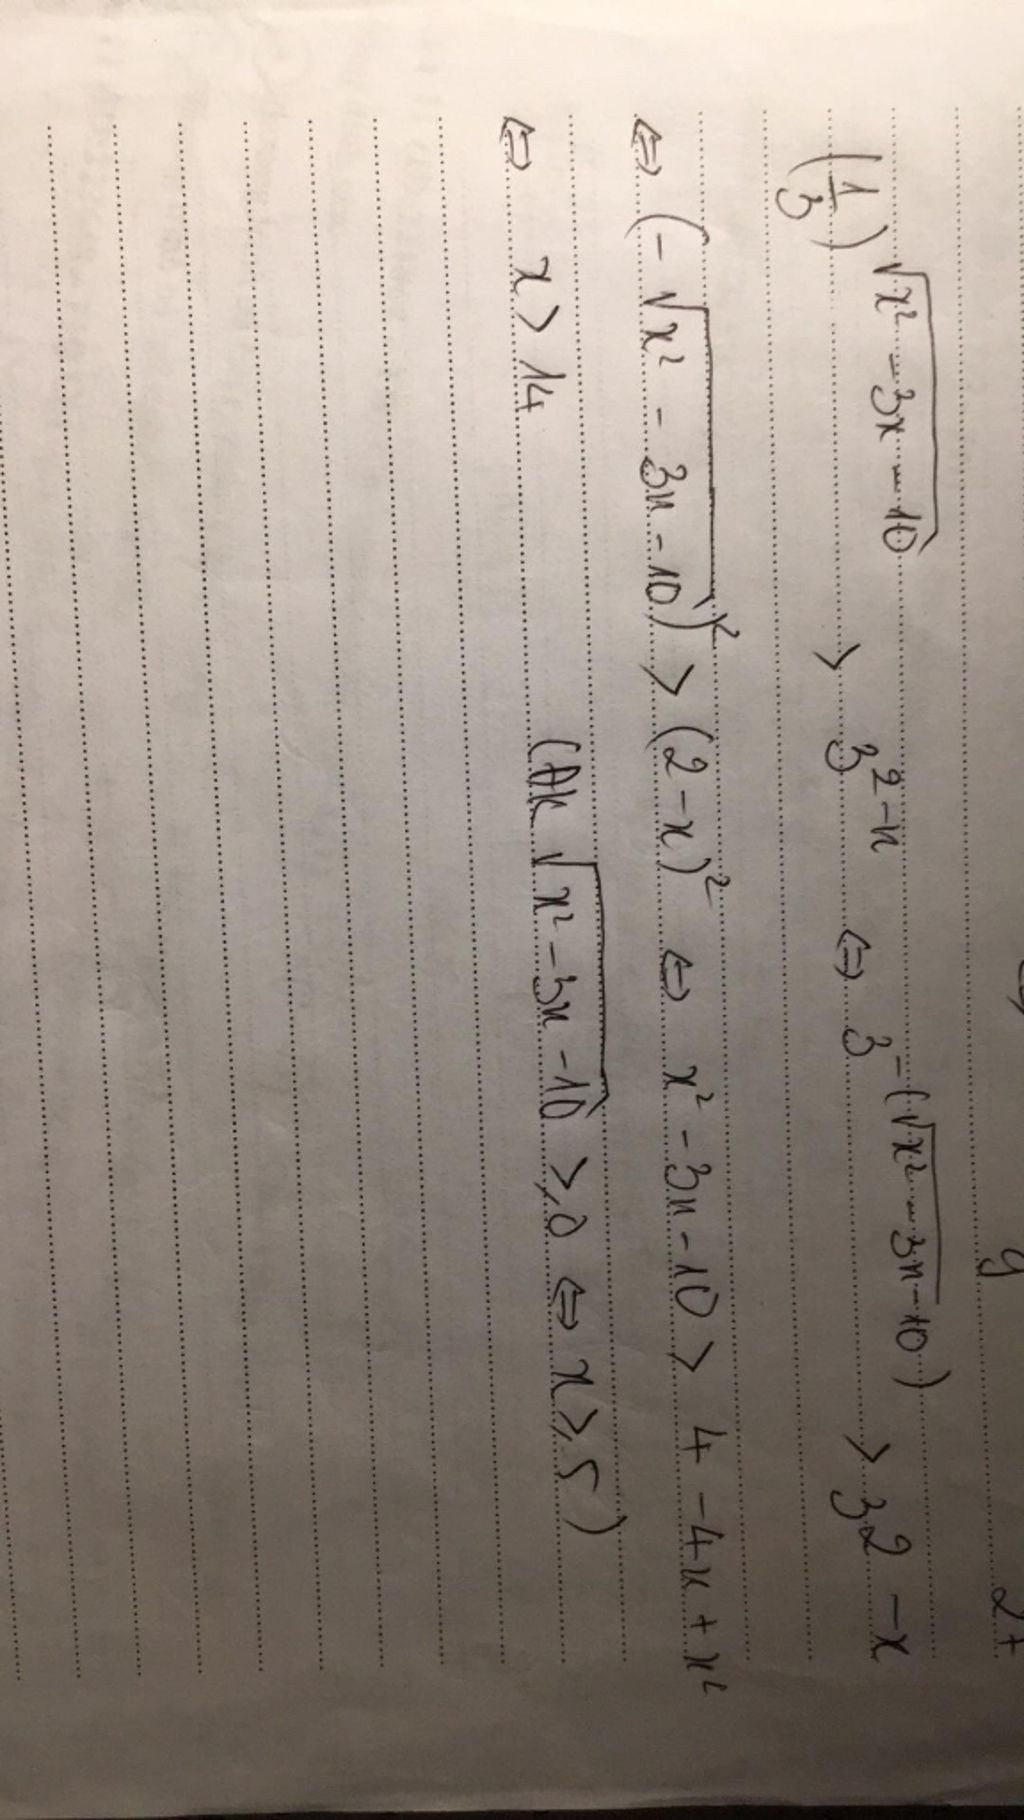 (1/3)^√(x² - 3x - 10) > 3^(2-x) ⇔ 3^-(√(x² - 3x - 10)) > 3^2 - x
⇔ (-√(x² - 3x - 10))² > (2 - x)² ⇔ x² - 3x - 10 > 4 - 4x + x²
⇔ x > 14 (ĐK √(x² - 3x - 10) ≥ 0 ⇔ x ≥ 5)